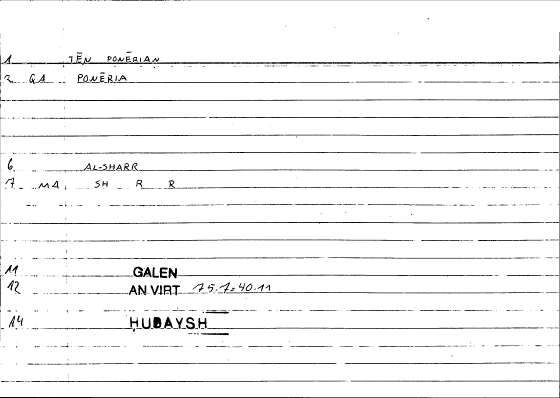 1 TĒN PONĒRIAN
2 GA PONĒRIA
6 AL-SHARR
7 MA SH R R
11 GALEN
12 AN VIRT 75.7.40.11
14 ḤUBAYSH